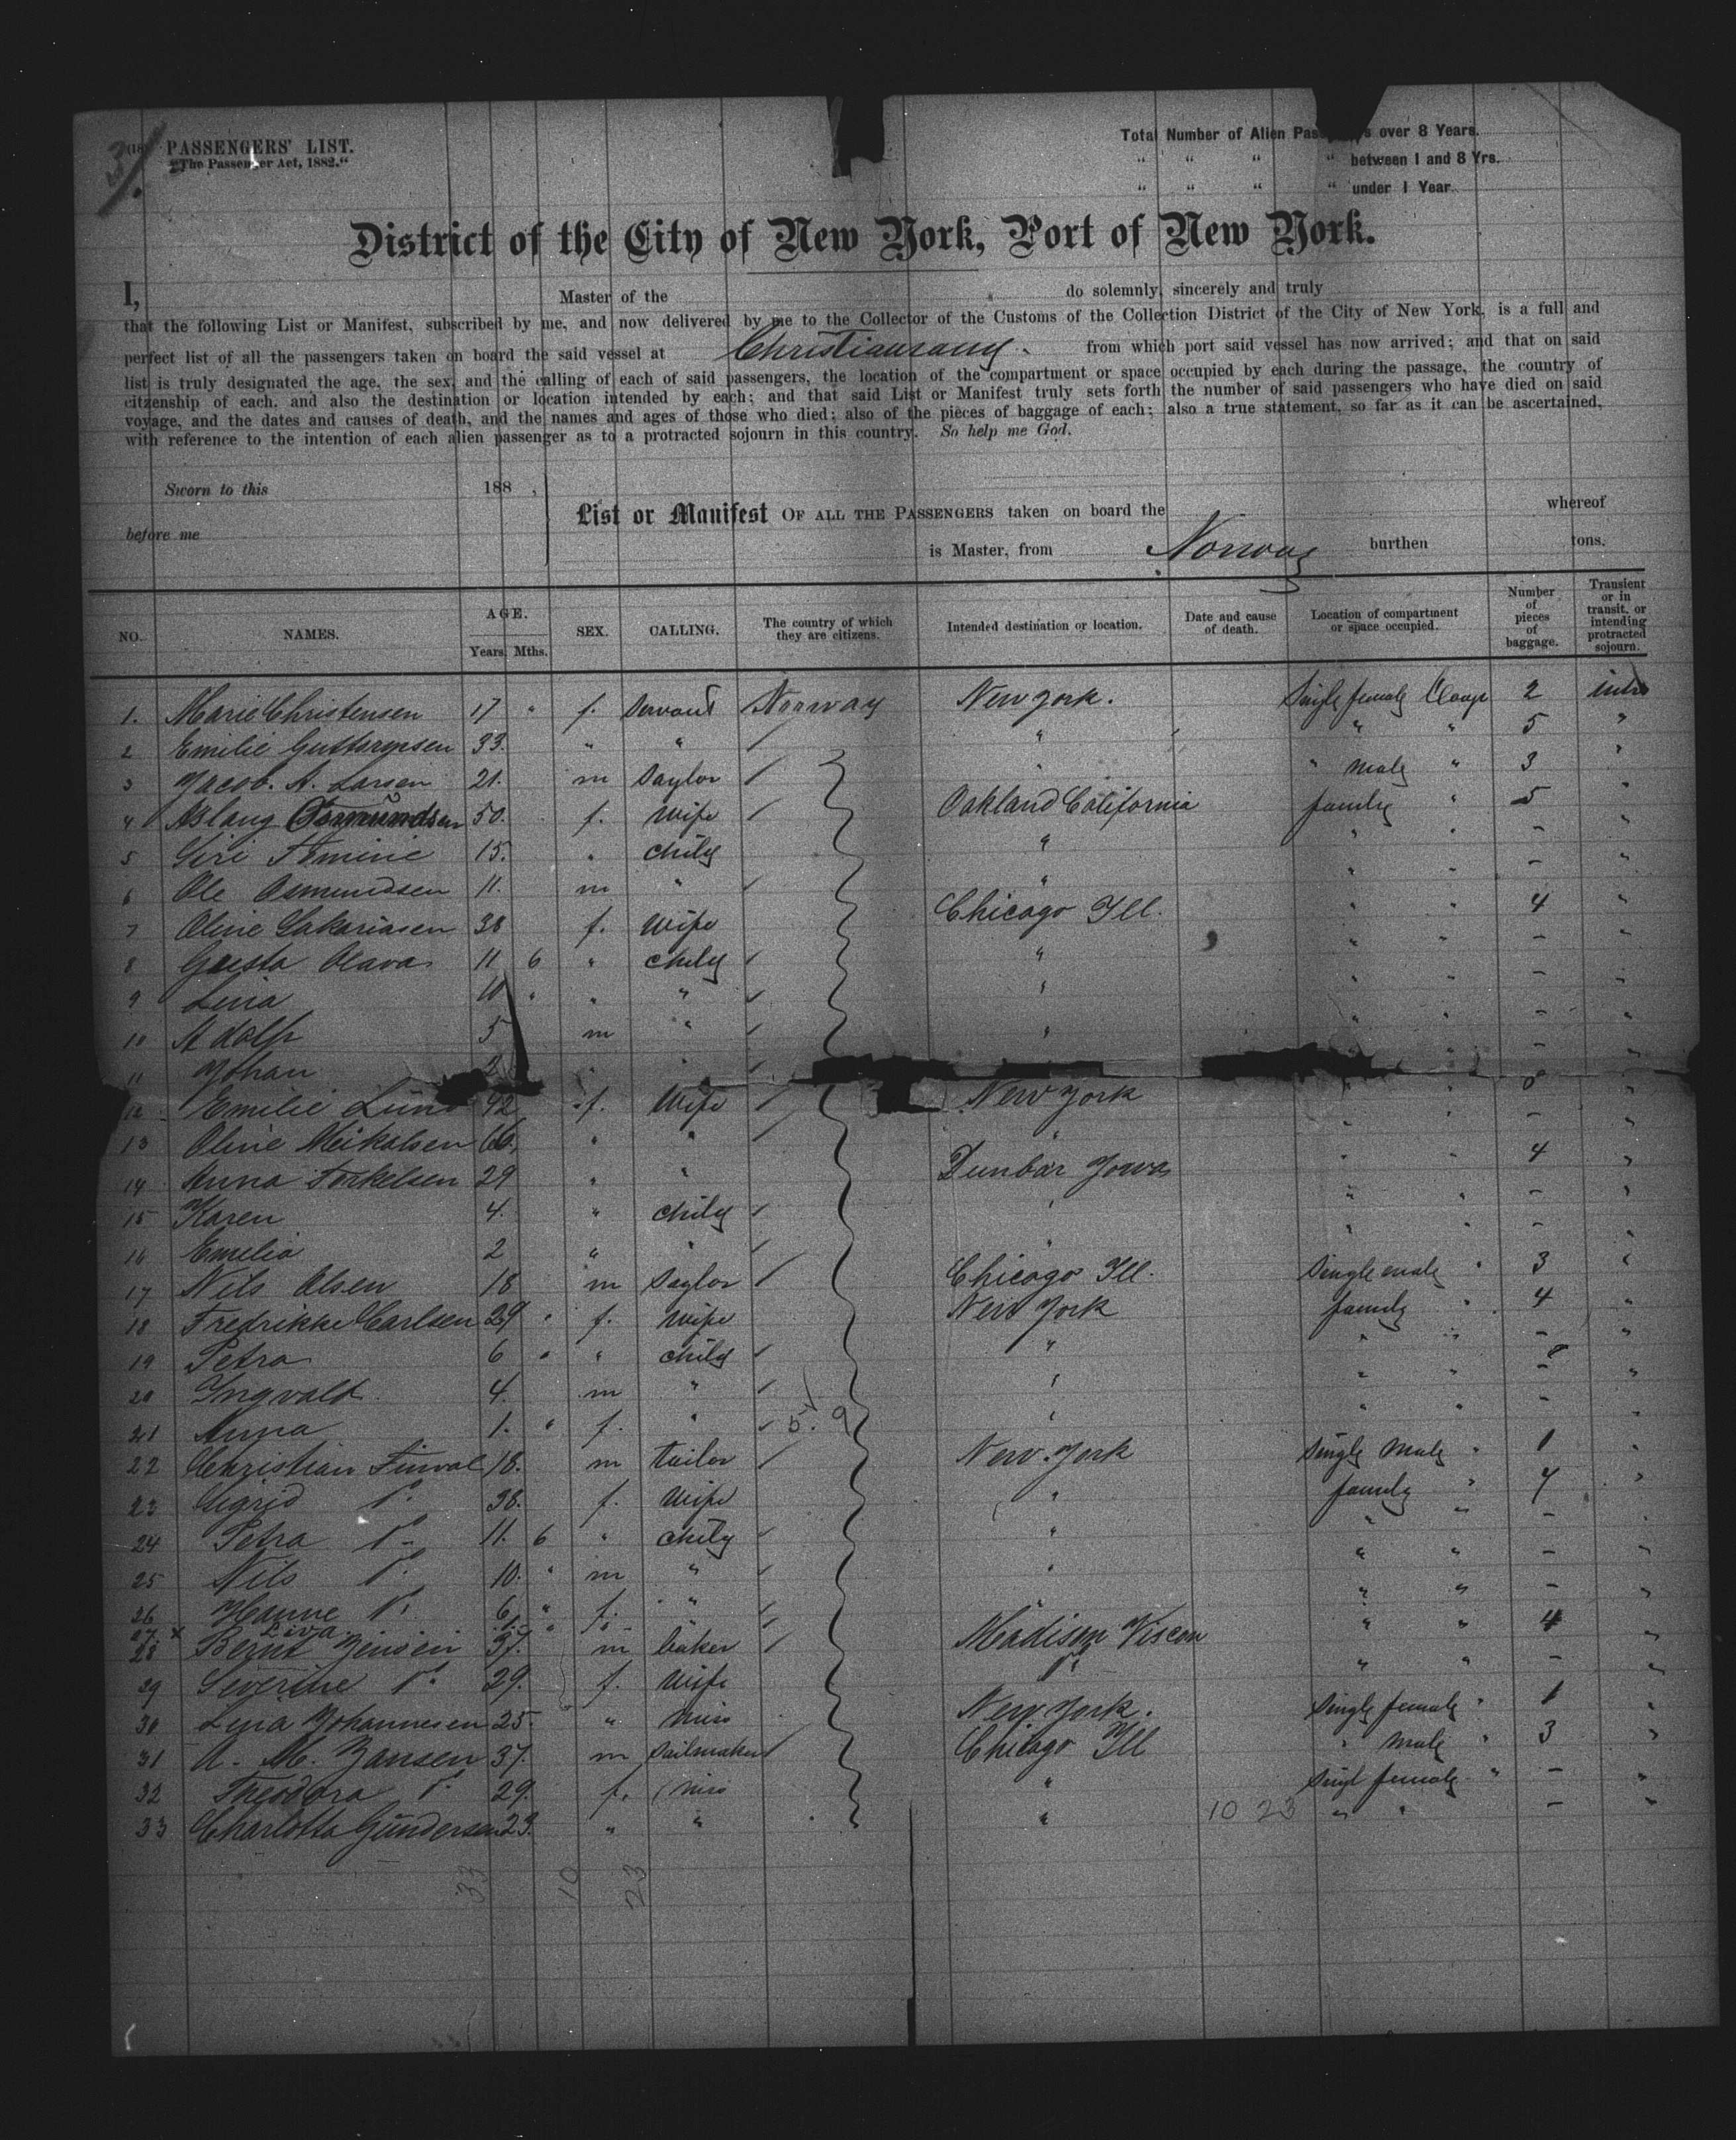 (18) PASSENGERS' LIST.
"The Passenger Act, 1882."
Total Number of Alien Pas s over 8 Years.
" " " " between 1 and 8 Yrs.
" " " " under 1 Year.
District of the City of New York, Port of New York.
I, Master of the do solemnly, sincerely and truly
that the following List or Manifest, subscribed by me, and now delivered by me to the Collector of the Customs of the Collection District of the City of New York, is a full and
perfect list of all the passengers taken on board the said vessel at Christiansand. from which port said vessel has now arrived; and that on said
list is truly designated the age, the sex, and the calling of each of said passengers, the location of the compartment or space occupied by each during the passage, the country of
citzenship of each. and also the destination or location intended by each; and that said List or Manifest truly sets forth the number of said passengers who have died on said
voyage, and the dates and causes of death, and the names and ages of those who died; also of the pieces of baggage of each; also a true statement, so far as it can be ascertained,
with reference to the intention of each alien passenger as to a protracted sojourn in this country. So help me God.
Sworn to this 188 ,
List or Manifest OF ALL THE PASSENGERS taken on board the whereof
before me
is Master, from Norway burthen tons.
NO. NAMES. AGE. Years. Mths. SEX. CALLING. The country of which they are citizens. Intended destination or location. Date and cause of death. Location of compartment or space occupied. Number of pieces of baggage. Transient or in transit, or intending protracted sojourn.
1. Marie Christensen 17 " f. Servant Norway New york. Single female 2
2 Emilie 33. " " " " " 5 "
3 Jacob. A. Larsen 21. m Saylor " " male " 3 "
4 Aslaug 50. f. Wife Oakland California family " 5 "
5 Siri Tomine 15. " child " " " – "
6 Ole Osmundsen 11. m " " " " – "
7 Oline Sakariasen 38 f. Wife Chicago Ill. " " 4 "
8 Gusta Olava 11 6 " child " " " – "
9 Lina 10 " " " " " " – "
10 Adolf 5 m " " " " – "
11 Johan 2 " " " " – "
12 Emilie Lund 42 f. Wife New york " "
13 Oline Meikalsen 66. " " " " " – "
14 Anna Torkelsen 29 " " Dunbar Jowa " " 4 "
15 Karen 4. " child " " " – "
16 Emelia 2 " " " " " – "
17 Nils Olsen 18 m Saylor Chicago Ill. Single male " 3 "
18 Fredrikke Carlsen 29 " f. Wife New York family " 4 "
19 Petra 6 " " child " " " – "
20 Ingvald 4. m " " " " – "
21 Anna 1. " f. " " " " – "
22 Christian Finval 18. m tailor New York Single Male " 1 "
23 Sigrid Do. 38. f. Wife " family " 4 "
24 Petra Do 11. 6 " child " " " – "
25 Nils Do. 10. " m " " " " – "
26 Hanne Do. 6 " f. " " " – "
27 x
28 Bernt Jensen 37. m baker Madison Viscon " " 4 "
29 Severine Do. 29. f. Wife Do. " " – "
30 Lina Johannesen 25. " Miss New York. Single female " 1 "
31 A. M. Jansen 37. m Sailmaker Chicago Ill " Male " 3 "
32 Theodora Do. 29. f. Miss " Singl female " – "
33 Charlotta Gundersen 23. " " " 10 23 " " – "
33 10 23